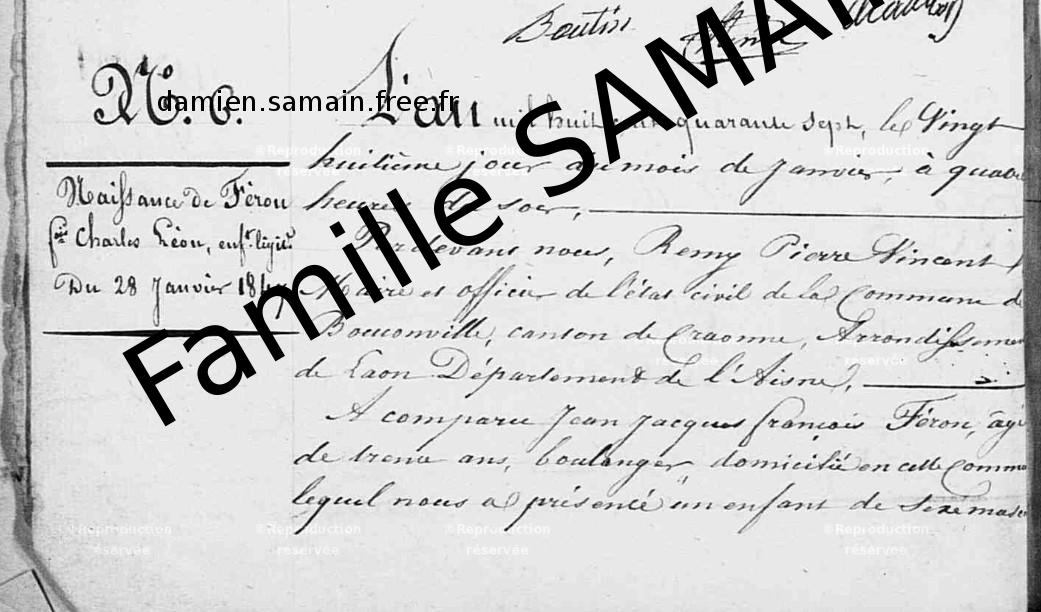 Boutin
N.º 6.
damien.samain.free.fr
Famille SAMAIN
Naissance de Féron
Charles Léon, enf.t légit.
Du 28 Janvier 1847
L'an mil huit cent quarante sept, le Vingt
huitième jour du mois de Janvier, à quatre
heures du soir,
Pardevant nous, Remy Pierre Vincent
Maire et officier de l'état civil de la Commune d
Bouconville, canton de Craonne, Arrondissemen
de Laon Département de l'Aisne,
A comparu Jean Jacques François Féron, âgé
de trente ans, boulanger domicilié en cette Commu
lequel nous a présenté un enfant de sexe mas
©Reproduction réservée